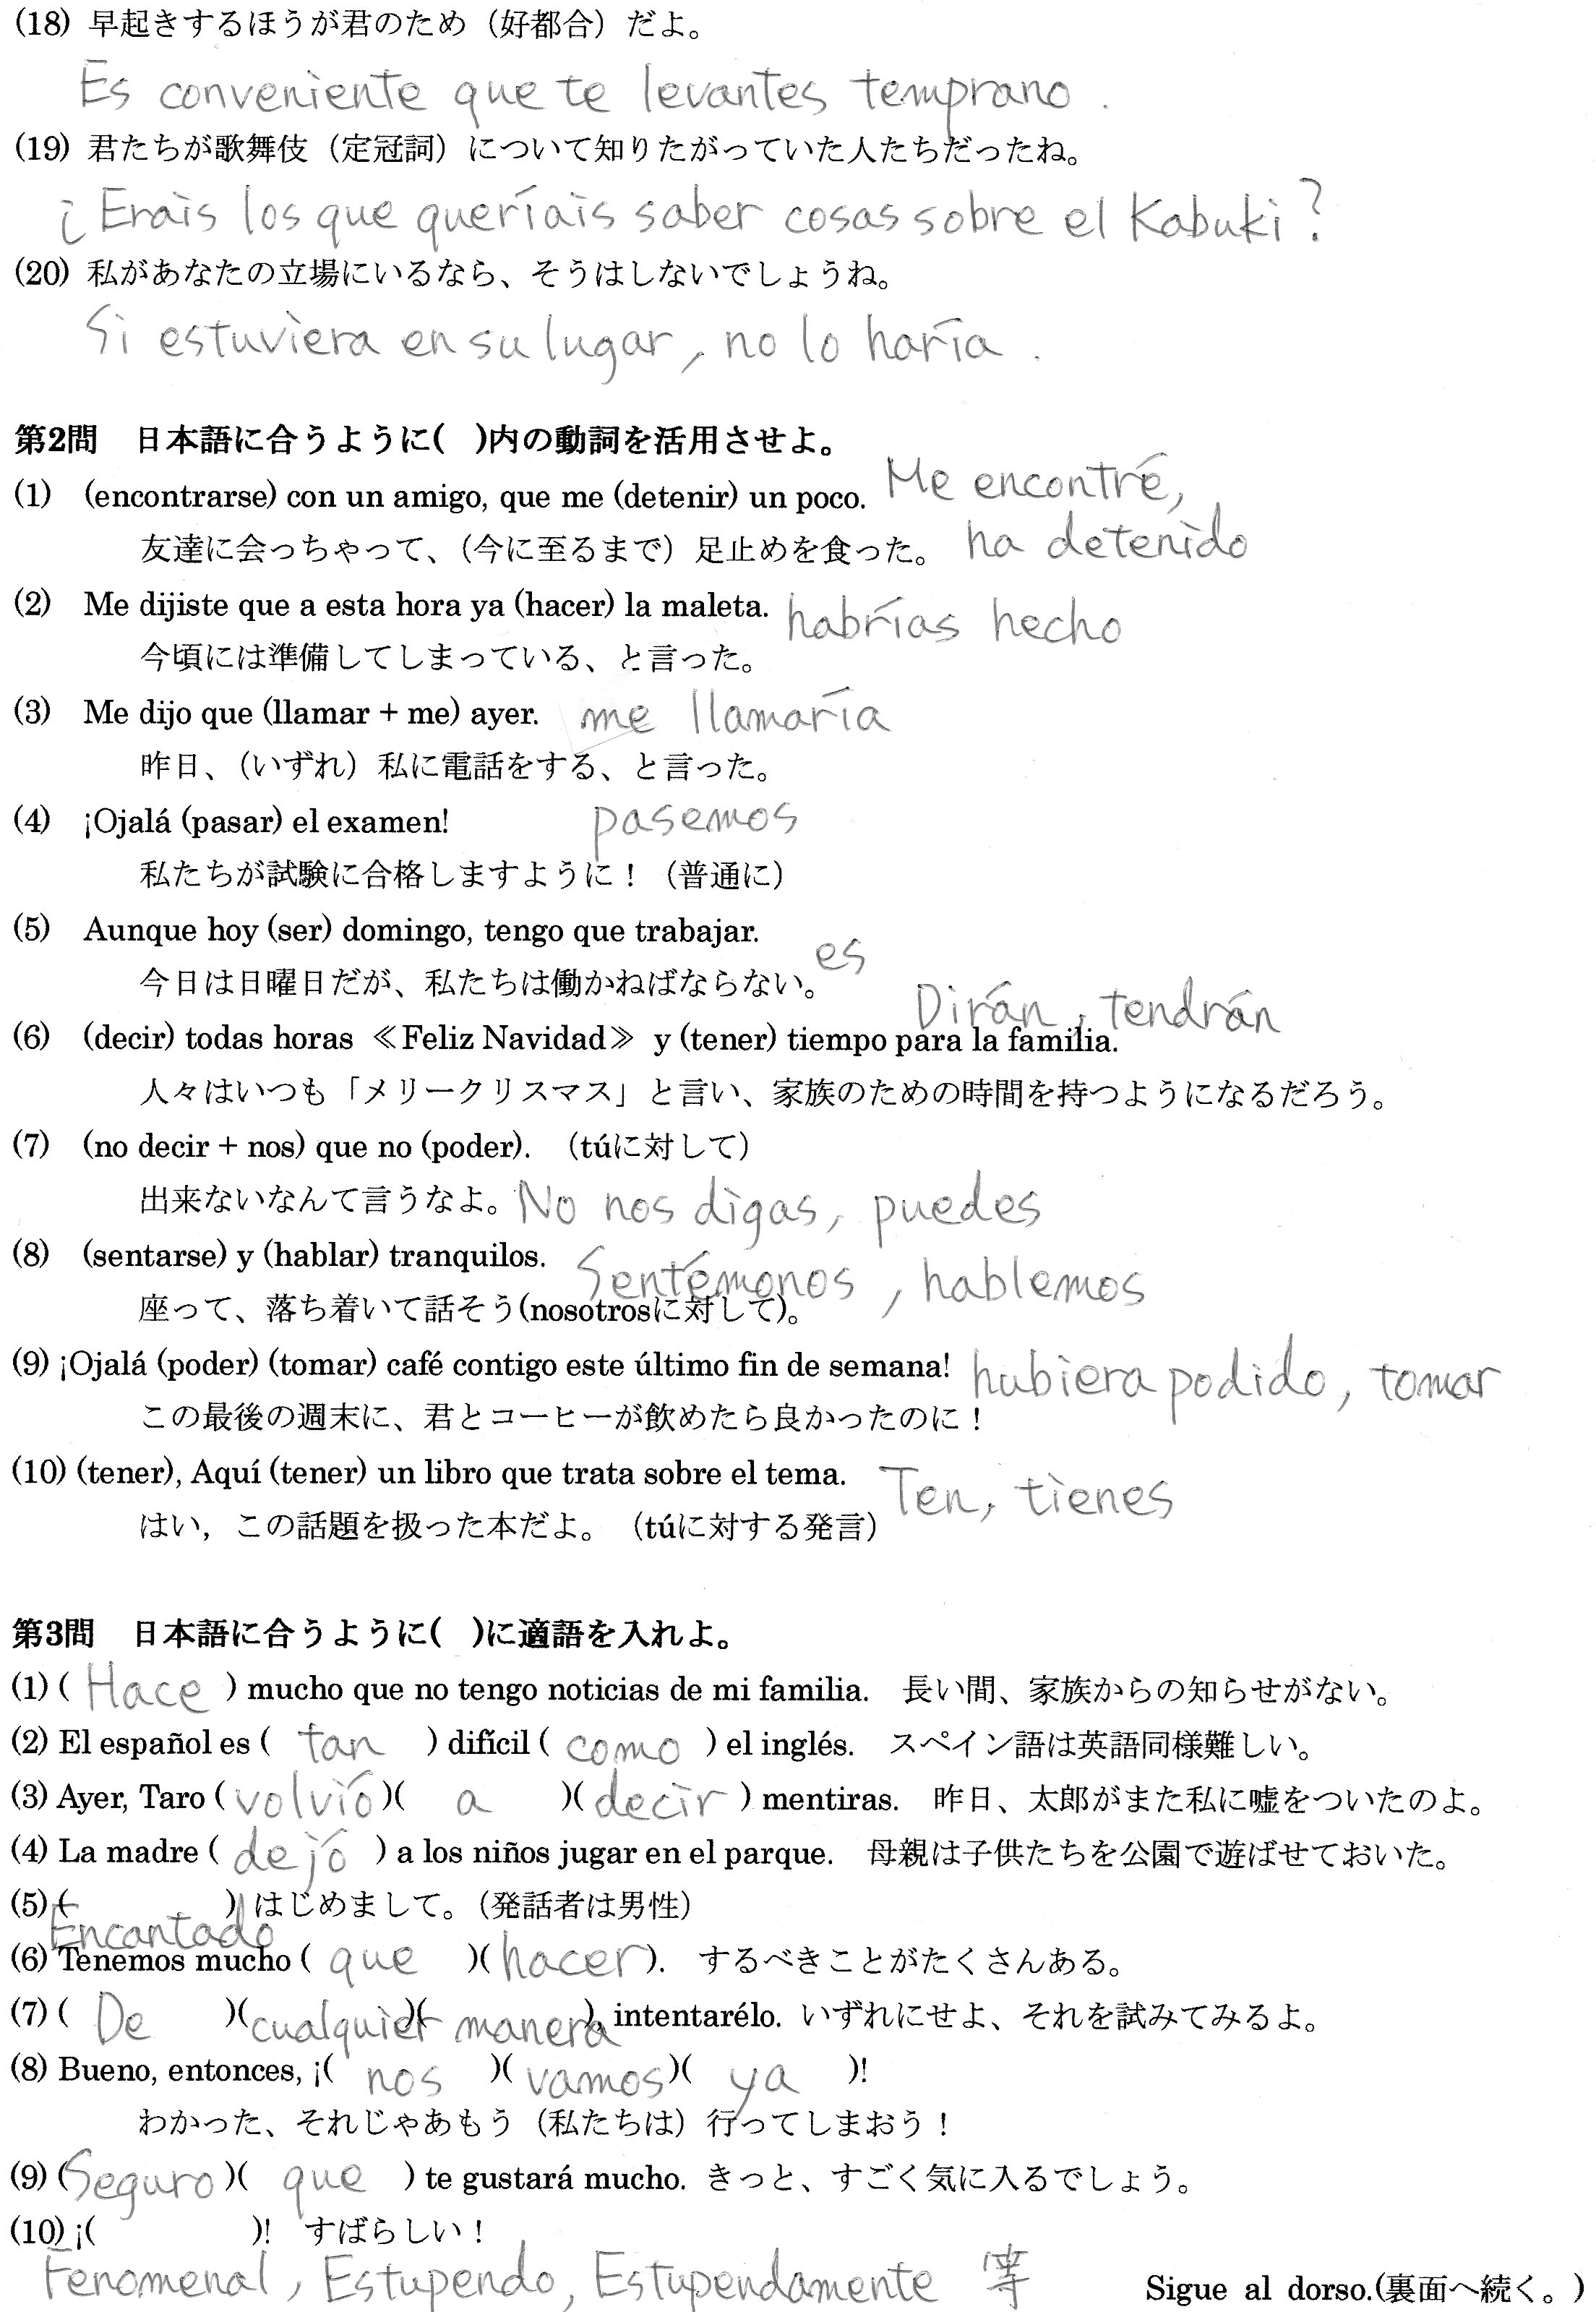 (18) 早起きするほうが君のため（好都合）だよ。
Es conveniente que te levantes temprano.
(19) 君たちが歌舞伎（定冠詞）について知りたがっていた人たちだったね。
¿Erais los que queríais saber cosas sobre el Kabuki?
(20) 私があなたの立場にいるなら、そうはしないでしょうね。
Si estuviera en su lugar, no lo haría.
第2問　日本語に合うように(　)内の動詞を活用させよ。
(1) (encontrarse) con un amigo, que me (detener) un poco. Me encontré,
友達に会っちゃって、（今に至るまで）足止めを食った。 ha detenido
(2) Me dijiste que a esta hora ya (hacer) la maleta. habrías hecho
今頃には準備してしまっている、と言った。
(3) Me dijo que (llamar + me) ayer. me llamaría
昨日、（いずれ）私に電話をする、と言った。
(4) ¡Ojalá (pasar) el examen! pasemos
私たちが試験に合格しますように！（普通に）
(5) Aunque hoy (ser) domingo, tengo que trabajar.
今日は日曜日だが、私たちは働かねばならない。 es
Dirán, tendrán
(6) (decir) todas horas ≪Feliz Navidad≫ y (tener) tiempo para la familia.
人々はいつも「メリークリスマス」と言い、家族のための時間を持つようになるだろう。
(7) (no decir + nos) que no (poder). （túに対して）
出来ないなんて言うなよ。 No nos digas, puedes
(8) (sentarse) y (hablar) tranquilos. Sentémonos, hablemos
座って、落ち着いて話そう(nosotrosに対して)。
(9) ¡Ojalá (poder) (tomar) café contigo este último fin de semana! hubiera podido, tomar
この最後の週末に、君とコーヒーが飲めたら良かったのに！
(10) (tener), Aquí (tener) un libro que trata sobre el tema. Ten, tienes
はい，この話題を扱った本だよ。（túに対する発言）
第3問　日本語に合うように(　)に適語を入れよ。
(1) ( Hace ) mucho que no tengo noticias de mi familia. 長い間、家族からの知らせがない。
(2) El español es ( tan ) difícil ( como ) el inglés. スペイン語は英語同様難しい。
(3) Ayer, Taro ( volvió )( a )( decir ) mentiras. 昨日、太郎がまた私に嘘をついたのよ。
(4) La madre ( dejó ) a los niños jugar en el parque. 母親は子供たちを公園で遊ばせておいた。
(5) (　　) はじめまして。（発話者は男性）
Encantado
(6) Tenemos mucho ( que )( hacer ). するべきことがたくさんある。
(7) ( De )( cualquier )( manera ), intentarélo. いずれにせよ、それを試みてみるよ。
(8) Bueno, entonces, ¡( nos )( vamos )( ya )!
わかった、それじゃあもう（私たちは）行ってしまおう！
(9) ( Seguro )( que ) te gustará mucho. きっと、すごく気に入るでしょう。
(10) ¡(　　)! すばらしい！
Fenomenal, Estupendo, Estupendamente 等
Sigue al dorso.(裏面へ続く。)